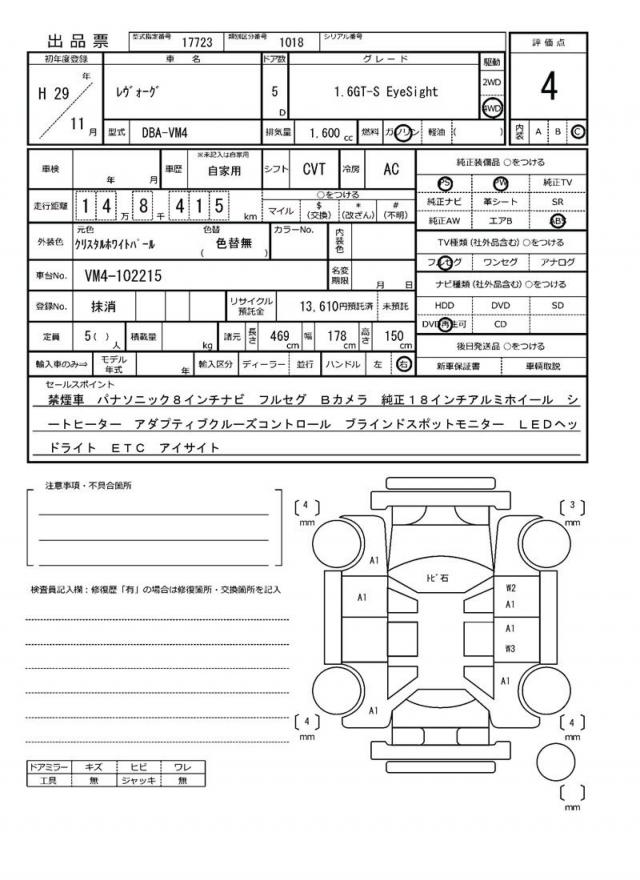 出品票 型式指定番号 17723 類別区分番号 1018 シリアル番号
評価点
4
初年度登録 車名 ドア数 グレード 駆動
H 29 年 レヴォーグ 5 D 1.6GT-S EyeSight 2WD
4WD
11 月 型式 DBA-VM4 排気量 1,600 cc 燃料 ガソリン 軽油 ( ) 内装 A B C
車検 年 月 車歴 ※未記入は自家用 自家用 シフト CVT 冷房 AC
走行距離 1 4 万 8 千 4 1 5 km ○をつける
マイル $(交換) *(改ざん) #(不明)
外装色 元色 クリスタルホワイトパール 色替 ( 色替無 ) カラーNo. 内装色
車台No. VM4-102215 名変期限 月 日
登録No. 抹消 リサイクル預託金 13,610円預託済 未預託
定員 5( )人 積載量 kg 諸元 長さ 469 cm 幅 178 cm 高さ 150 cm
輸入車のみ⇒ モデル年式 年 輸入区分 ディーラー 並行 ハンドル 左 右
純正装備品 ○をつける
PS PW 純正TV
純正ナビ 革シート SR
純正AW エアB ABS
TV種類(社外品含む) ○をつける
フルセグ ワンセグ アナログ
ナビ種類(社外品含む) ○をつける
HDD DVD SD
DVD再生可 CD
後日発送品 ○をつける
新車保証書 車輌取説
セールスポイント
禁煙車 パナソニック8インチナビ フルセグ Bカメラ 純正18インチアルミホイール シ
ートヒーター アダプティブクルーズコントロール ブラインドスポットモニター LEDヘッ
ドライト ETC アイサイト
注意事項・不具合箇所
検査員記入欄：修復歴「有」の場合は修復箇所・交換箇所を記入
ドアミラー キズ ヒビ ワレ
工具 無 ジャッキ 無
[ 4 ] mm
[ 3 ] mm
A1
A1
トビ石
A1
W2
A1
A1
W3
A1
A1
[ 4 ] mm
[ 4 ] mm
[ ] mm